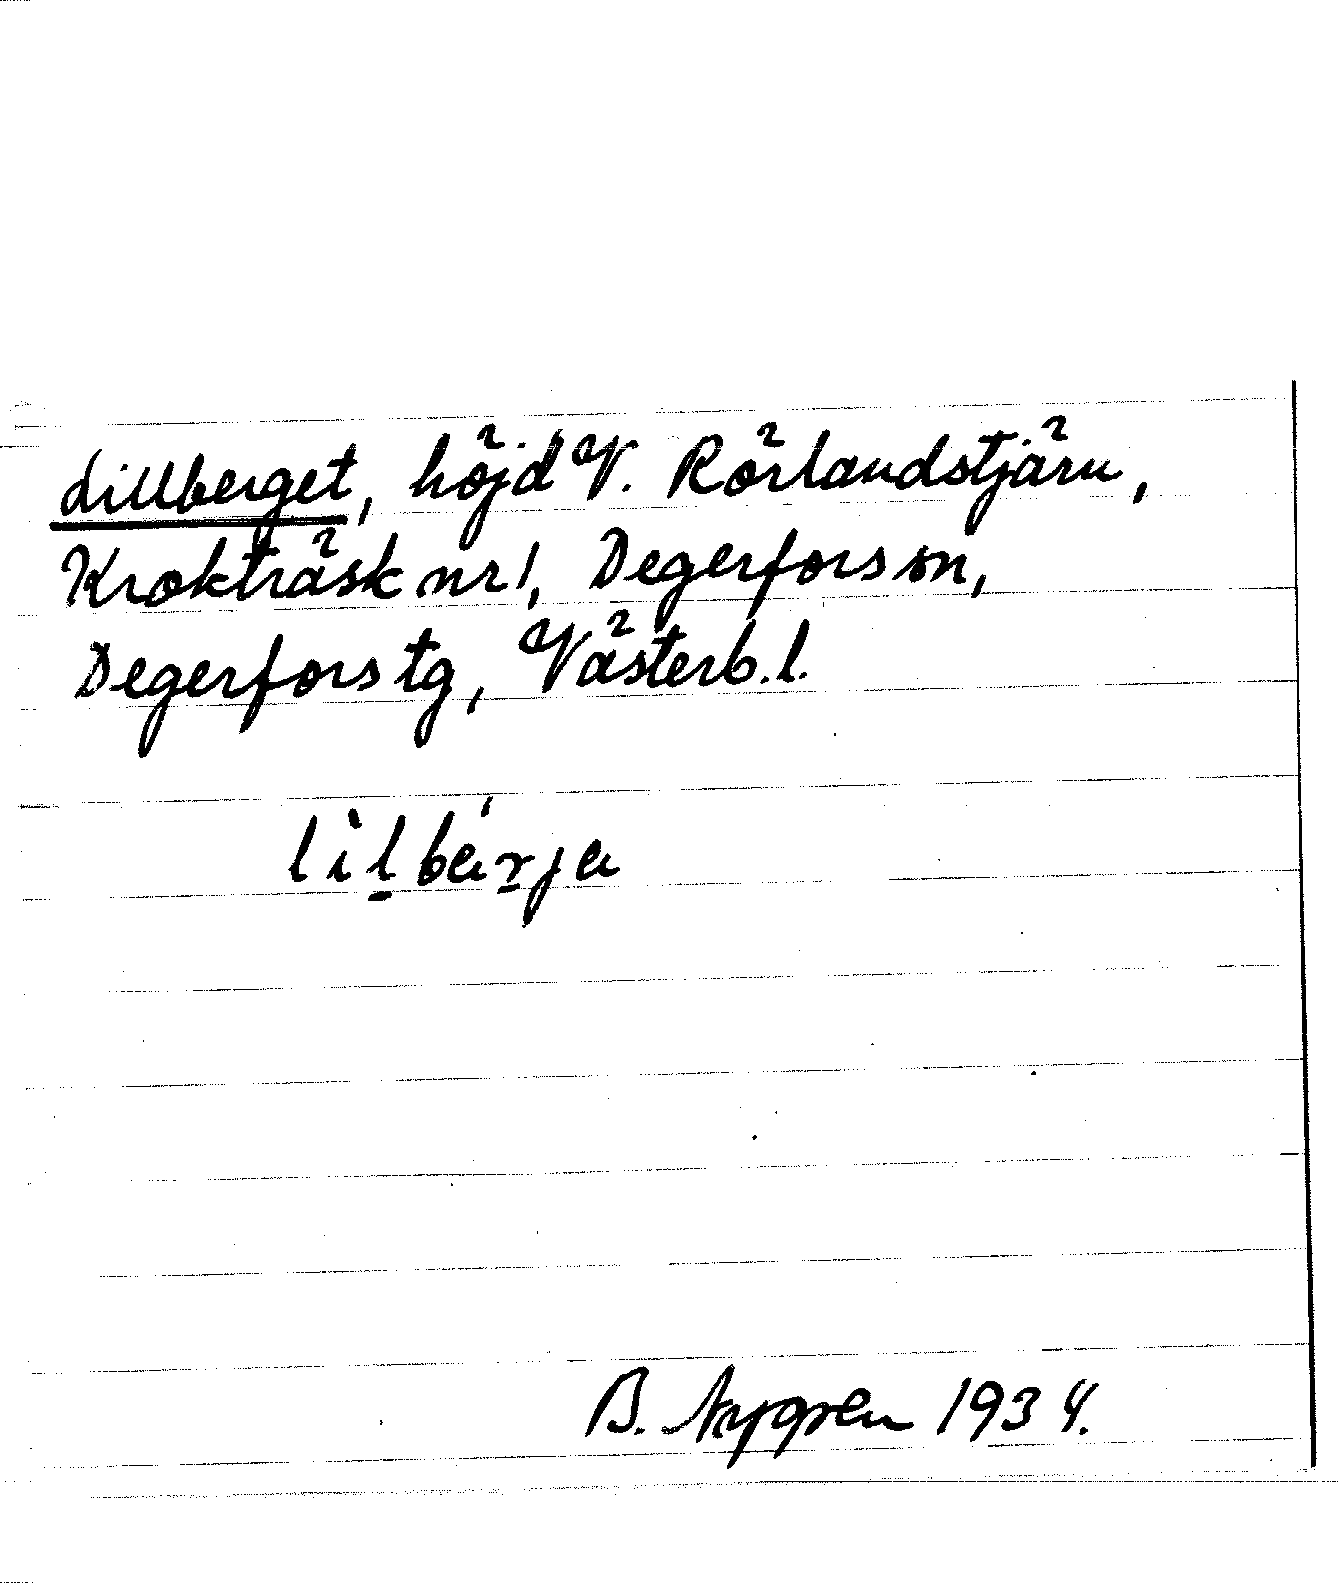 Lillberget, höjd V. Rörlandstjärn,
Krokträsk nr 1, Degerfors sn,
Degerfors tg, Västerb. l.
lìl̠bá́r̠ja
B. Nygren 1934.